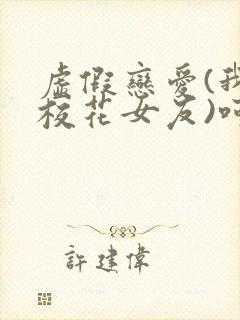 虛假戀愛(我
校花女友)
許建偉